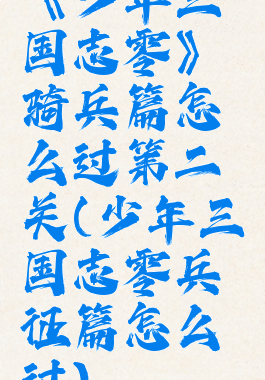 《少年三
国志零》
骑兵篇怎
么过第二
关(少年三
国志零兵
征篇怎么
过)